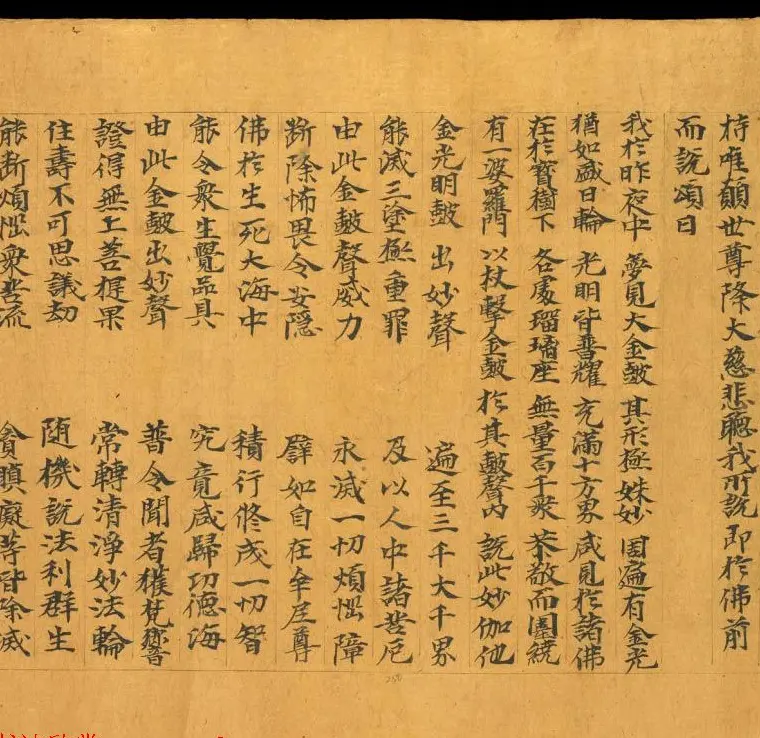 持唯願世尊降大慈悲聽我所說即於佛前
而說頌曰
我於昨夜中 夢見大金皷 其形極姝妙 周遍有金光
猶如盛日輪 光明皆普耀 充滿十方界 咸見於諸佛
在於寶樹下 各處瑠璃座 無量百千衆 恭敬而圍繞
有一婆羅門 以杖擊金皷 於其皷聲內 說此妙伽他
金光明皷出妙聲 遍至三千大千界
能滅三塗極重罪 及以人中諸苦厄
由此金皷聲威力 永滅一切煩惱障
斷除怖畏令安隱 譬如自在牟尼尊
佛於生死大海中 積行修成一切智
能令衆生覺品具 究竟咸歸功德海
由此金皷出妙聲 普令聞者獲梵響
證得無上菩提果 常轉清淨妙法輪
住壽不可思議劫 隨機說法利群生
能斷煩惱衆苦流 貪瞋癡等皆除滅